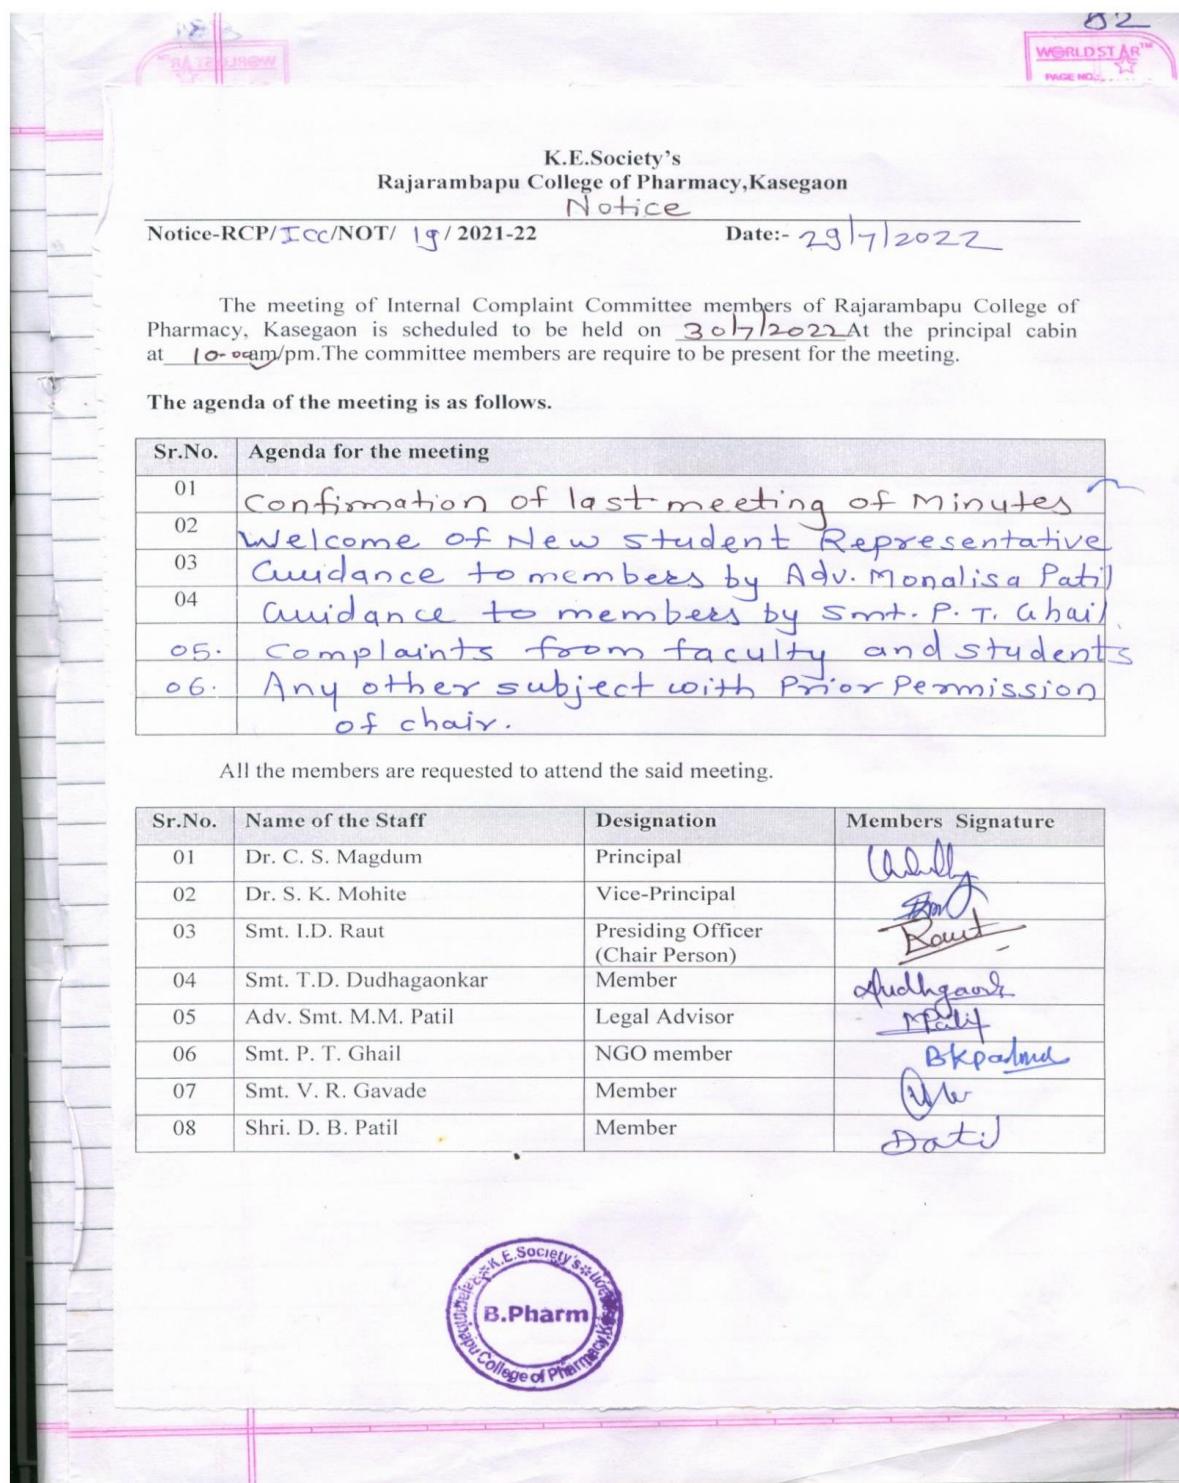 82
WORLDSTAR™
PAGE NO.:
K.E.Society's
Rajarambapu College of Pharmacy,Kasegaon
Notice
Notice-RCP/ICC/NOT/ 19/ 2021-22 Date:- 29/7/2022
The meeting of Internal Complaint Committee members of Rajarambapu College of
Pharmacy, Kasegaon is scheduled to be held on 30/7/2022 At the principal cabin
at 10-00am/pm.The committee members are require to be present for the meeting.
The agenda of the meeting is as follows.
Sr.No. Agenda for the meeting
01 Confirmation of last meeting of Minutes
02 Welcome of New Student Representative
03 Guidance to members by Adv. Monalisa Patil
04 Guidance to members by Smt. P. T. Ghail.
05. Complaints from faculty and students
06. Any other subject with Prior Permission
of chair.
All the members are requested to attend the said meeting.
Sr.No. Name of the Staff Designation Members Signature
01 Dr. C. S. Magdum Principal
02 Dr. S. K. Mohite Vice-Principal
03 Smt. I.D. Raut Presiding Officer Raut
(Chair Person)
04 Smt. T.D. Dudhagaonkar Member
05 Adv. Smt. M.M. Patil Legal Advisor MPatil
06 Smt. P. T. Ghail NGO member BKpadma
07 Smt. V. R. Gavade Member
08 Shri. D. B. Patil Member
K.E.Society's
B.Pharm
Rajarambapu College of Pharmacy,